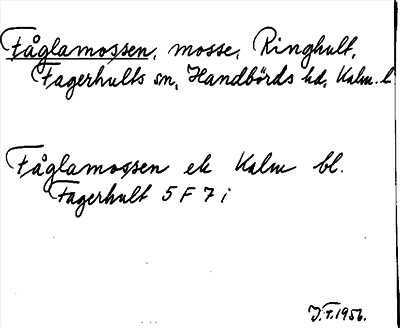 Fåglamossen, mosse, Ringhult,
Fagerhults sn, Handbörds hd, Kalm. l
Fåglamossen ek Kalm bl.
Fagerhult 5 F 7 i
J.T. 1956.